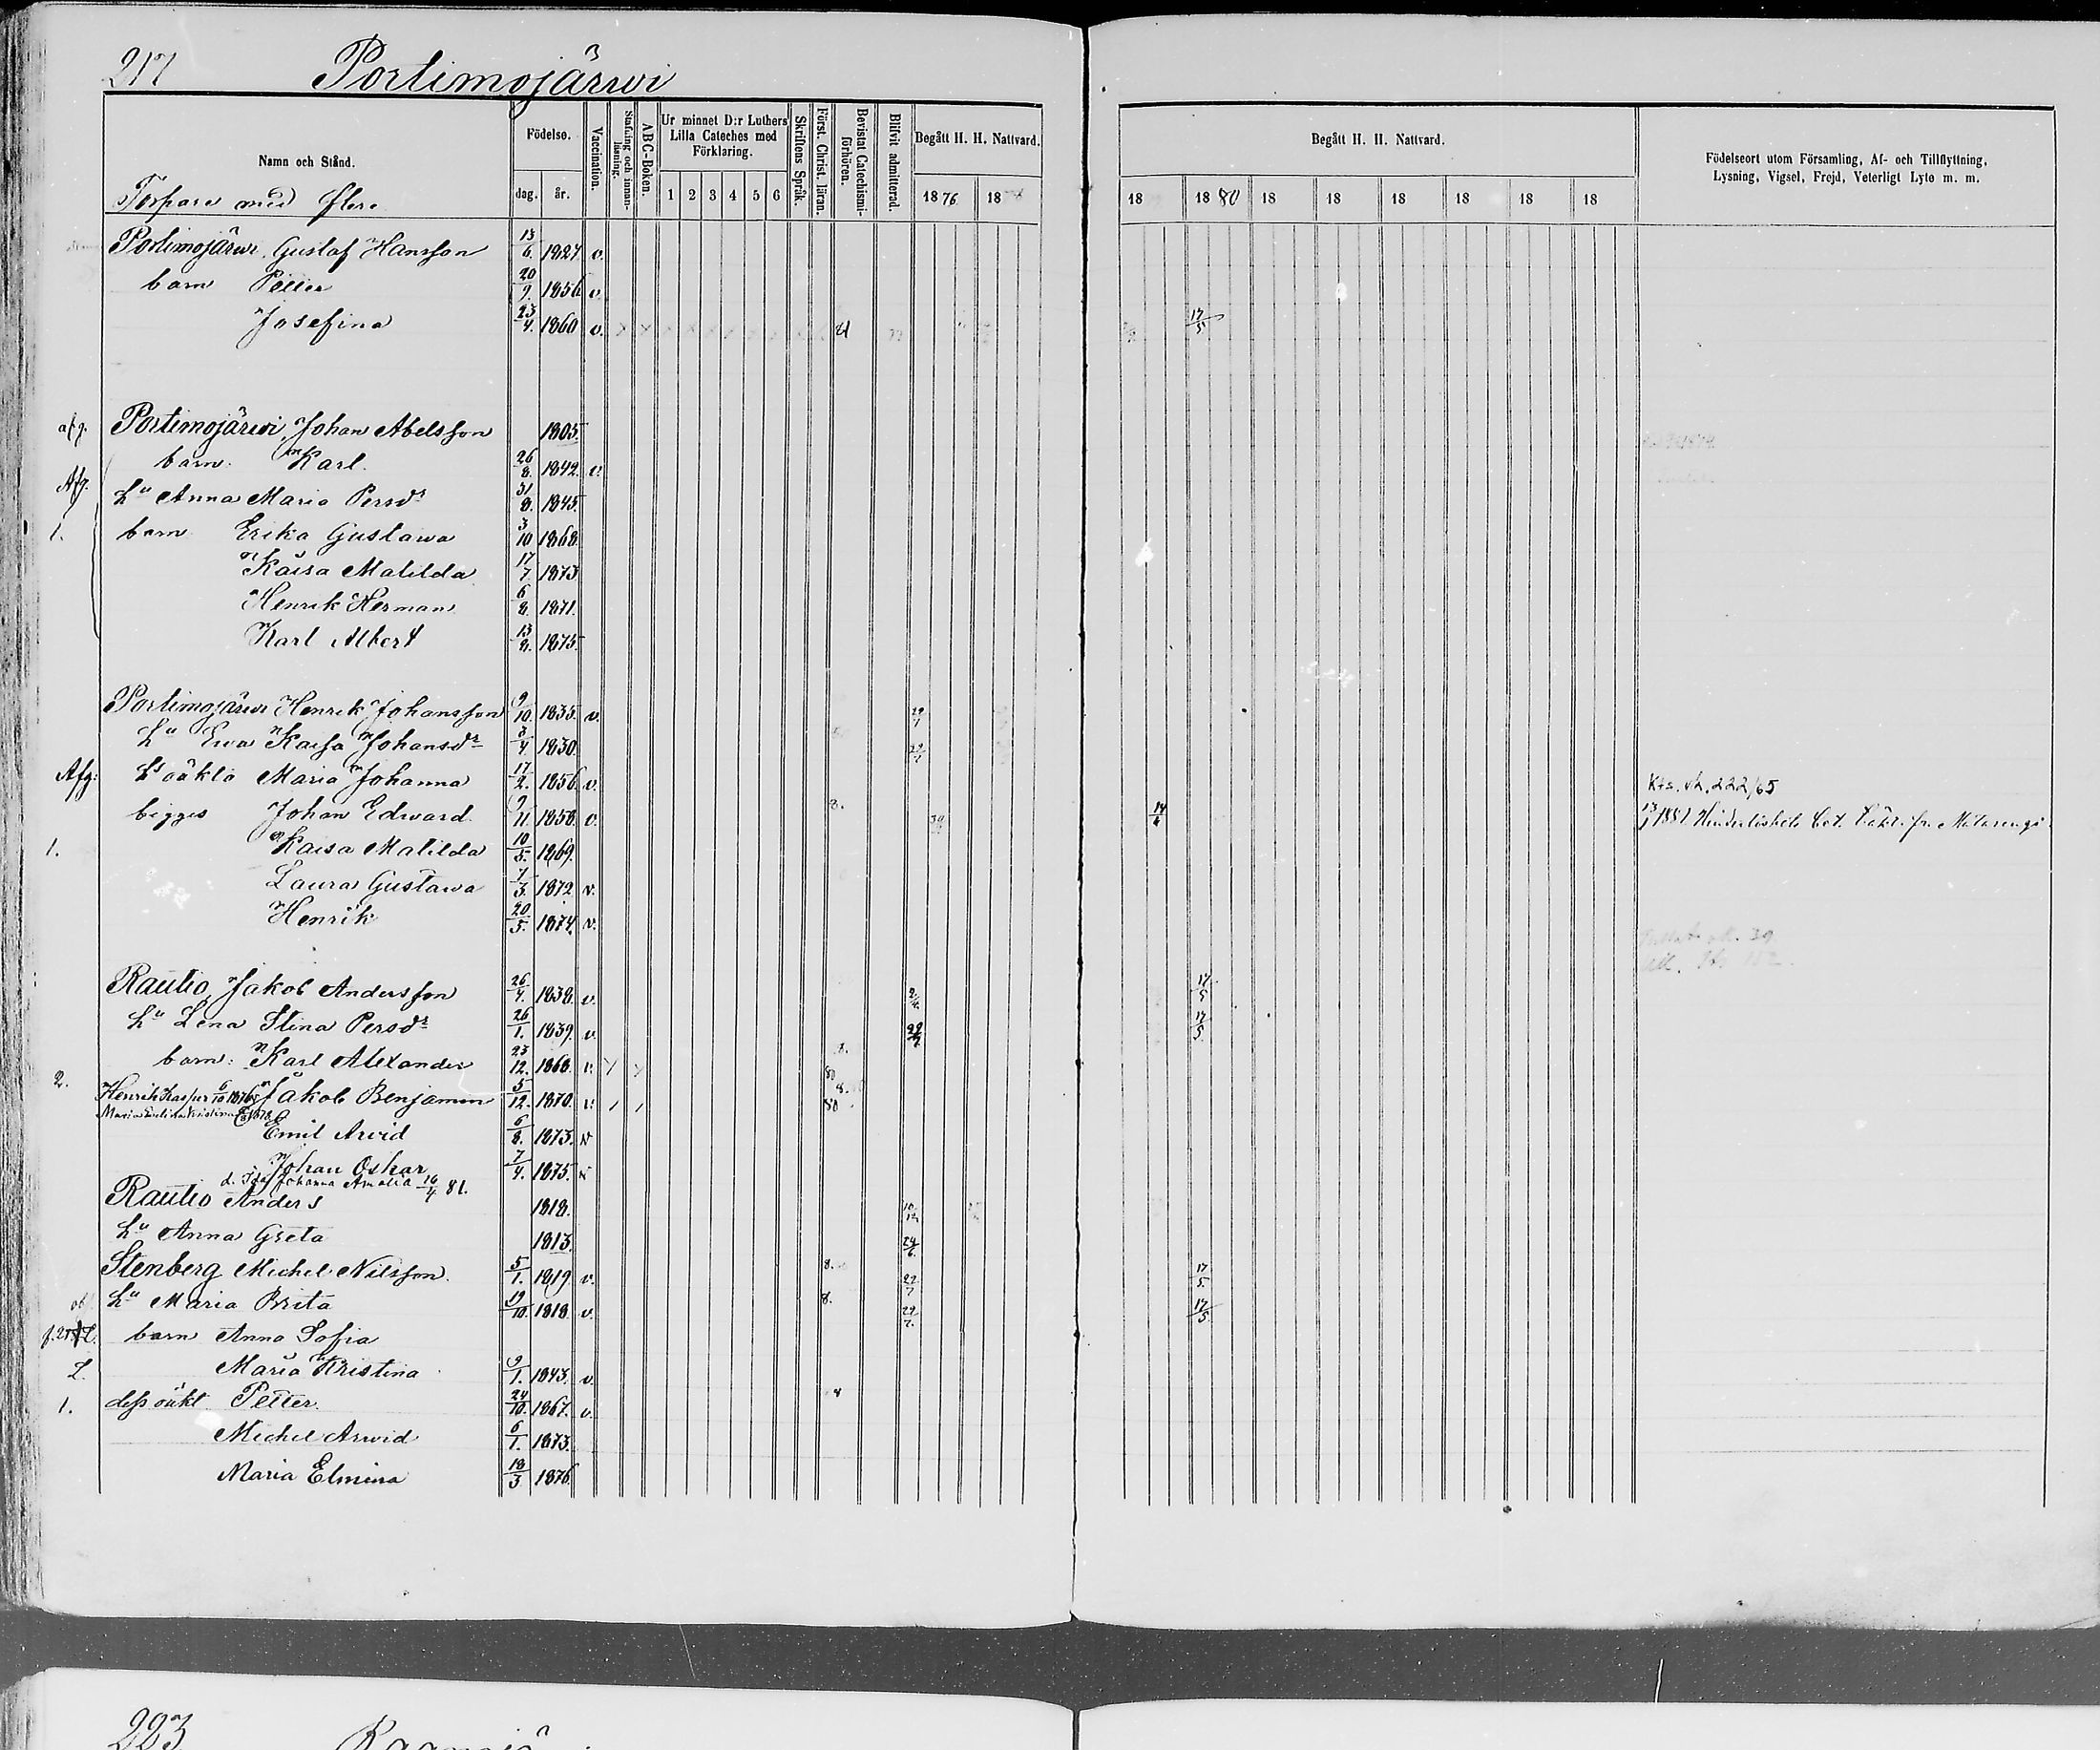 217 Portimojärwi
Namn och Stånd. Födelse. Vaccination. Stafning och innanläsning. ABC-Boken. Ur minnet D:r Luthers Lilla Cateches med Förklaring. Skriftens Språk. Först. Christ. läran. Bevistat Catechismiförhören. Blifvit admitterad. Begått H. H. Nattvard. Begått H. H. Nattvard. Födelseort utom Församling, Af- och Tillflyttning, Lysning, Vigsel, Frejd, Veterligt Lyte m. m.
dag. år. 1 2 3 4 5 6 1876 18 18 1880 18 18 18 18 18 18
Torpare med flere
Portimojärwi Gustaf Hansson 13/6. 1827 v.
barn Petter 20/9. 1856 v.
Josefina 23/4. 1860 v. 17/5
afg. Portimojärwi, Johan Abelsson 1805.
barn. Karl. 26/8. 1842. v.
Afg. hu Anna Maria Persdr 31/8. 1845.
1. barn Erika Gustawa 3/10 1868.
Kaisa Matilda 17/7 1873
Henrik Herman 6/8. 1871.
Karl Albert 13/8. 1875.
Portimojärwi Henrik Johansson 9/10. 1835. v. 29/7
hu Ewa Kaisa Johansdr 3/4. 1830. 29/7
Afg: hs oäkta Maria Johanna 17/2. 1856. v. Kts. sh. 222/65
bägges Johan Edward 9/11. 1858. v. 8. 14/6 13/1 1881 Hinderlöshets bet.
1. Kaisa Matilda 10/5. 1869.
Laura Gustawa 7/3. 1872 v.
Henrik 20/5. 1874. v.
Rautio, Jakob Andersson 26/4. 1838. v. 17/5
hu Lena Stina Persdr 26/1. 1839. v. 29/7 17/5
barn: Karl Alexander 23/12. 1868. v.
2. Henrik Kaspar 6/10 1876 Jakob Benjamin 5/12. 1870. v. 8.
Emil Arvid 6/8. 1873. v
Johan Oskar 7/4. 1875. v
d. Ida Johanna Amalia 10/4 81.
Rautio Anders 1818.
hu Anna Greta 1813. 24/6.
Stenberg Michel Nilsson. 5/1. 1819 v. 8. 29/7 17/5.
hu Maria Brita 19/10. 1818 v. 8. 29/7. 17/5
barn Anna Sofia
2. Maria Kristina 9/1. 1843. v.
1. dess oäkt Petter. 24/10. 1867. v.
Michel Arwid 6/1. 1873.
Maria Elmina 18/3 1876
223